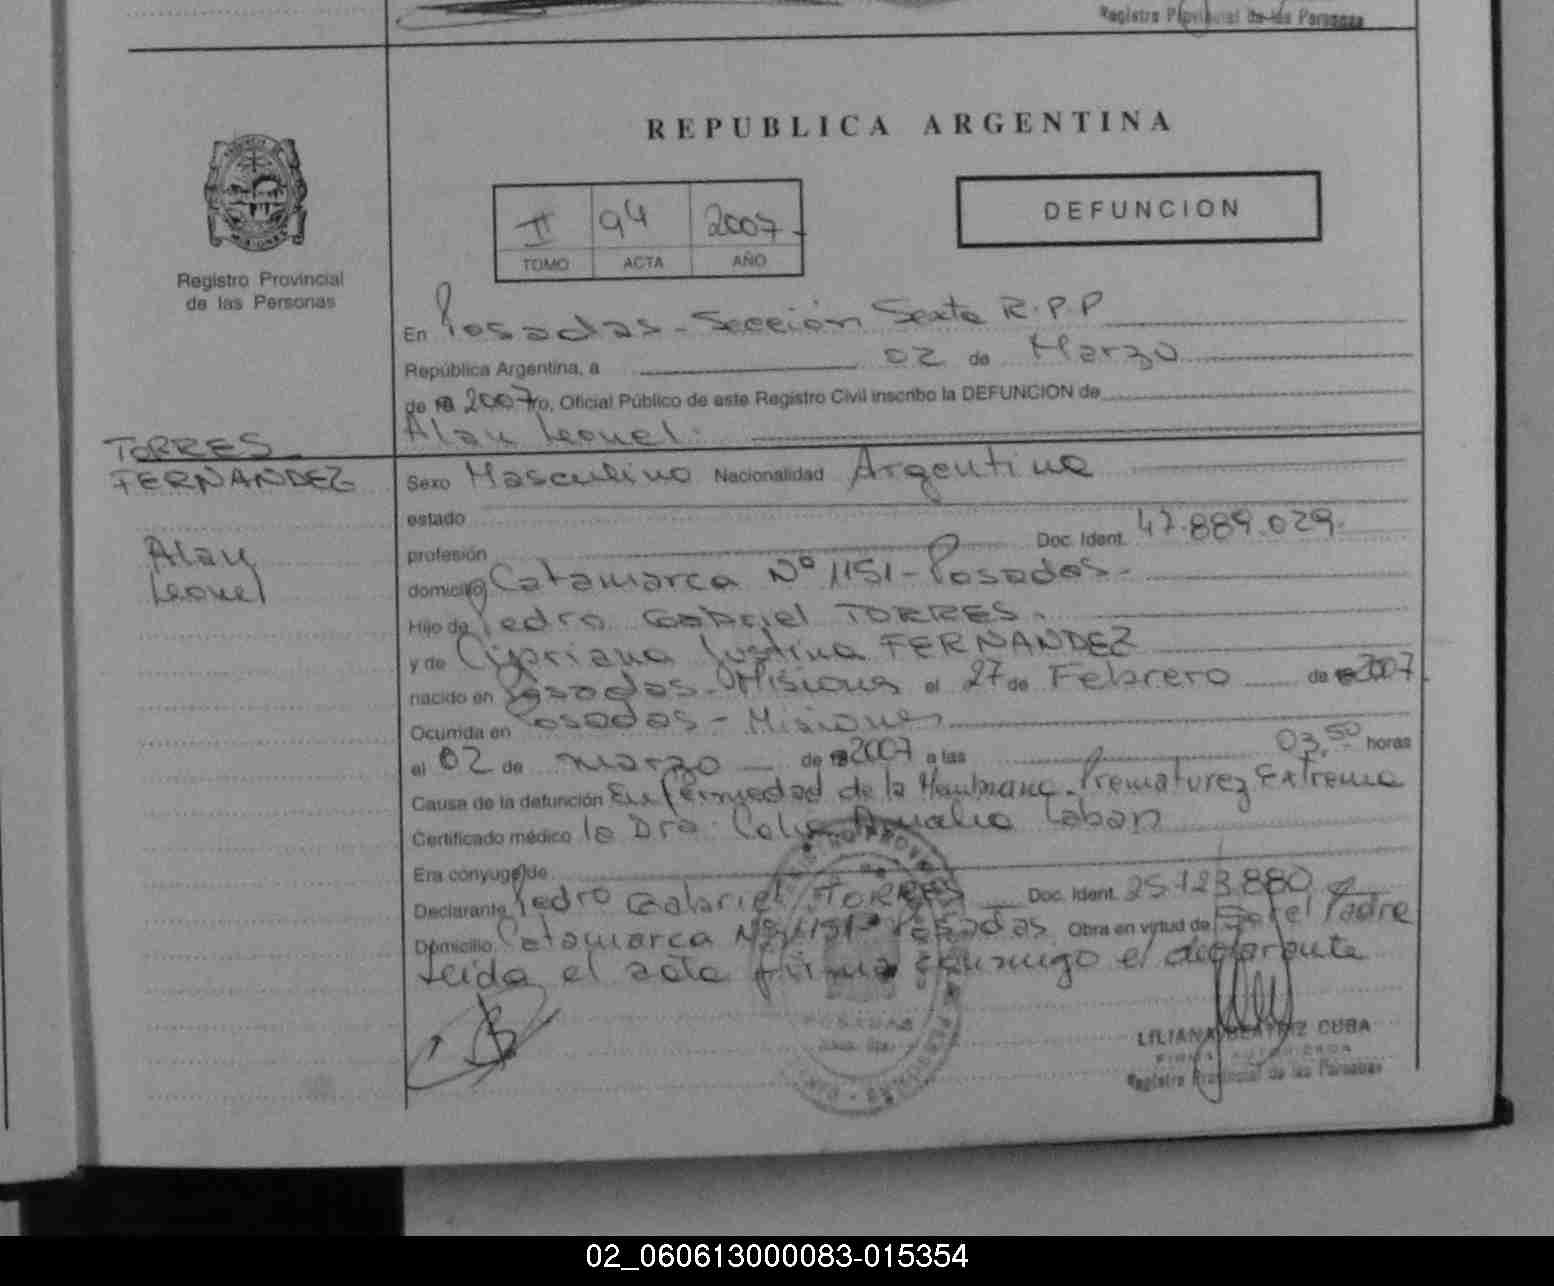 Registro Provincial de las Personas
REPUBLICA ARGENTINA
II 94 2007
TOMO ACTA AÑO
DEFUNCION
Registro Provincial
de las Personas
En Posadas - Sección Sexta R.P.P
República Argentina, a 02 de Marzo
de 2007 yo, Oficial Público de este Registro Civil inscribo la DEFUNCION de
Alan Leonel.
TORRES
FERNANDEZ
Alan
Leonel
Sexo Masculino Nacionalidad Argentina
estado
profesión Doc. Ident. 47.889.029.
domicilio Catamarca Nº 1151 - Posadas -
Hijo de Pedro Gabriel TORRES.
y de Cipriana Justina FERNANDEZ
nacido en Posadas - Misiones el 27 de Febrero de 2007
Ocurrida en Posadas - Misiones
el 02 de marzo de 2007 a las 03,50 horas
Causa de la defunción Enfermedad de la Membrana - Prematurez Extrema
Certificado médico la Dra. Amalia
Era cónyuge de
Declarante Pedro Gabriel TORRES Doc. Ident. 25.123.880
Domicilio Catamarca Nº 1151 - Posadas Obra en virtud de Ser el Padre
Leida el acta firma conmigo el declarante
POSADAS
LILIANA BEATRIZ CUBA
FIRMA AUTORIZADA
Registro Provincial de las Personas
02_060613000083-015354